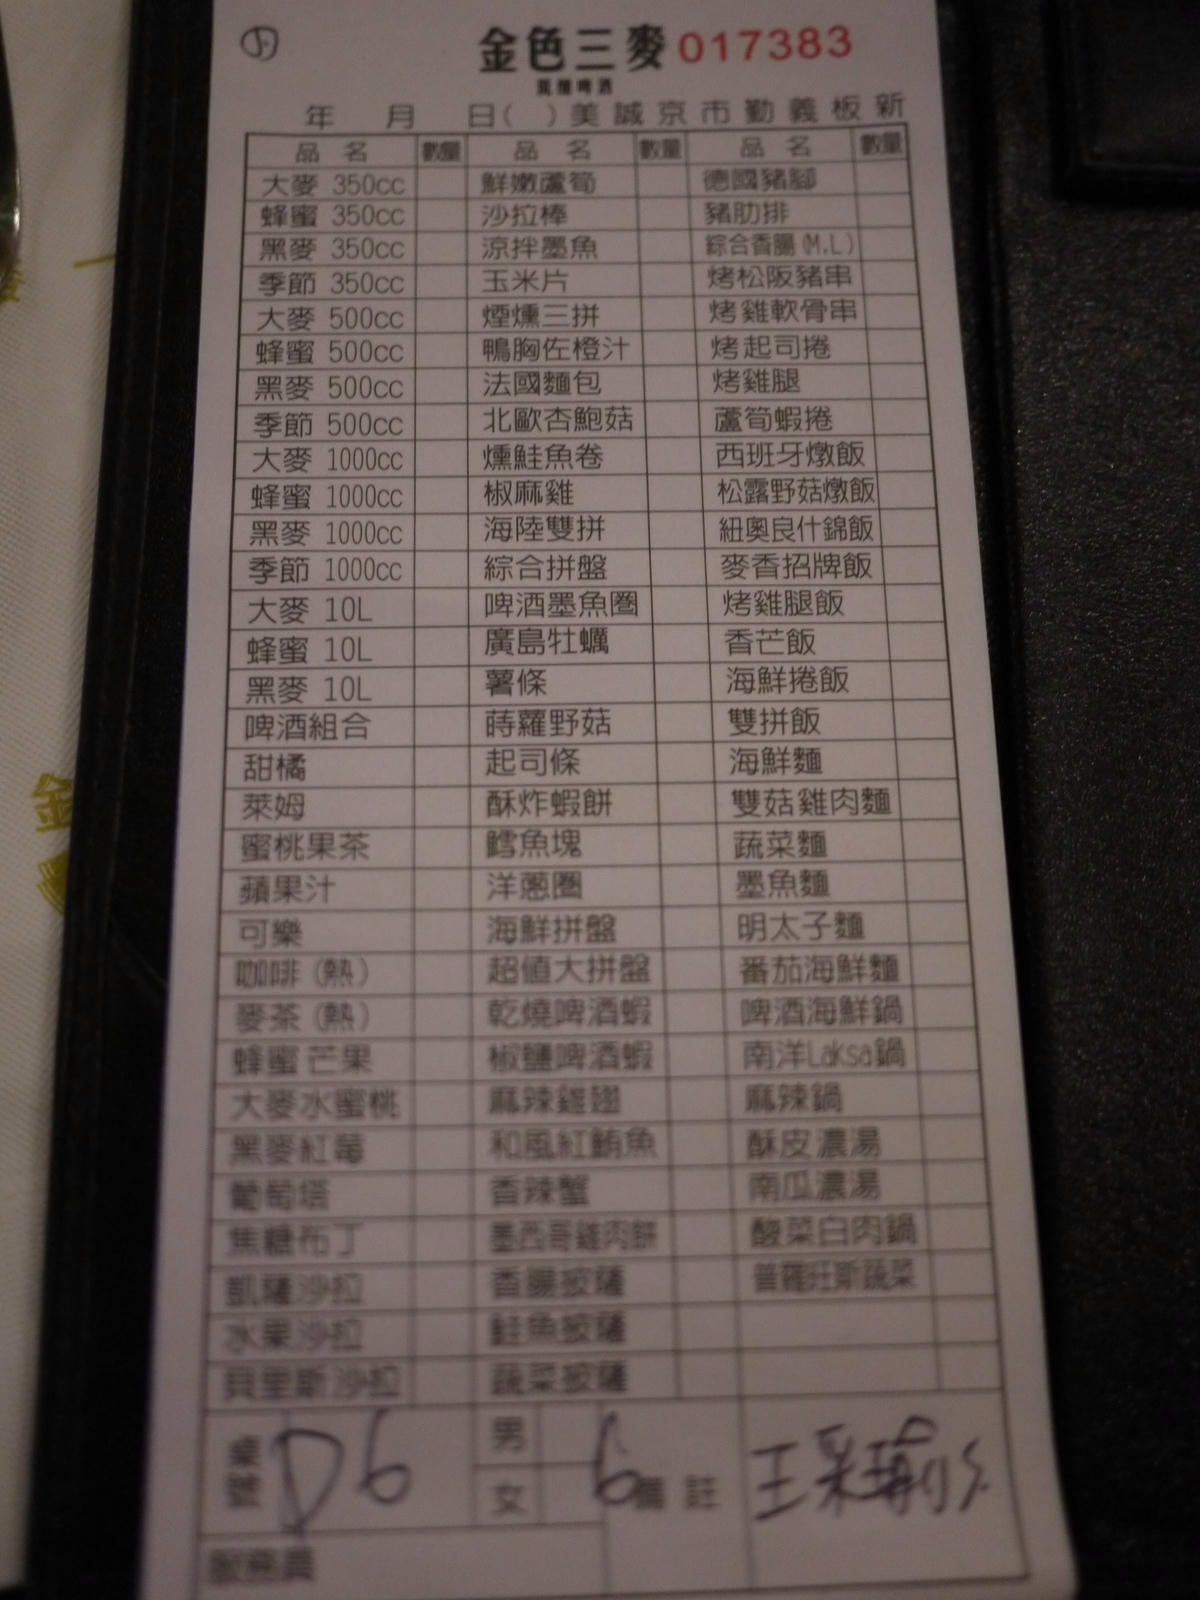 金色三麥 017383
年 月 日( ) 美 誠 京 市 勤 義 板 新
品 名 數量 品 名 數量 品 名 數量
大麥 350cc 鮮嫩蘆筍 德國豬腳
蜂蜜 350cc 沙拉棒 豬肋排
黑麥 350cc 涼拌墨魚 綜合香腸(M.L)
季節 350cc 玉米片 烤松阪豬串
大麥 500cc 煙燻三拼 烤雞軟骨串
蜂蜜 500cc 鴨胸佐橙汁 烤起司捲
黑麥 500cc 法國麵包 烤雞腿
季節 500cc 北歐杏鮑菇 蘆筍蝦捲
大麥 1000cc 燻鮭魚卷 西班牙燉飯
蜂蜜 1000cc 椒麻雞 松露野菇燉飯
黑麥 1000cc 海陸雙拼 紐奧良什錦飯
季節 1000cc 綜合拼盤 麥香招牌飯
大麥 10L 啤酒墨魚圈 烤雞腿飯
蜂蜜 10L 廣島牡蠣 香芒飯
黑麥 10L 薯條 海鮮捲飯
啤酒組合 蒔蘿野菇 雙拼飯
甜橘 起司條 海鮮麵
萊姆 酥炸蝦餅 雙菇雞肉麵
蜜桃果茶 鱈魚塊 蔬菜麵
蘋果汁 洋蔥圈 墨魚麵
可樂 海鮮拼盤 明太子麵
咖啡(熱) 超值大拼盤 番茄海鮮麵
麥茶(熱) 乾燒啤酒蝦 啤酒海鮮鍋
蜂蜜芒果 椒鹽啤酒蝦 南洋Laksa鍋
大麥水蜜桃 麻辣雞翅 麻辣鍋
黑麥紅莓 和風紅鮪魚 酥皮濃湯
葡萄塔 香辣蟹 南瓜濃湯
焦糖布丁 墨西哥雞肉餅 酸菜白肉鍋
凱薩沙拉 香腸披薩 普羅旺斯蔬菜
水果沙拉 鮭魚披薩
貝里斯沙拉 蔬菜披薩
桌號 D6 男 女 6 備 註
服務員
金